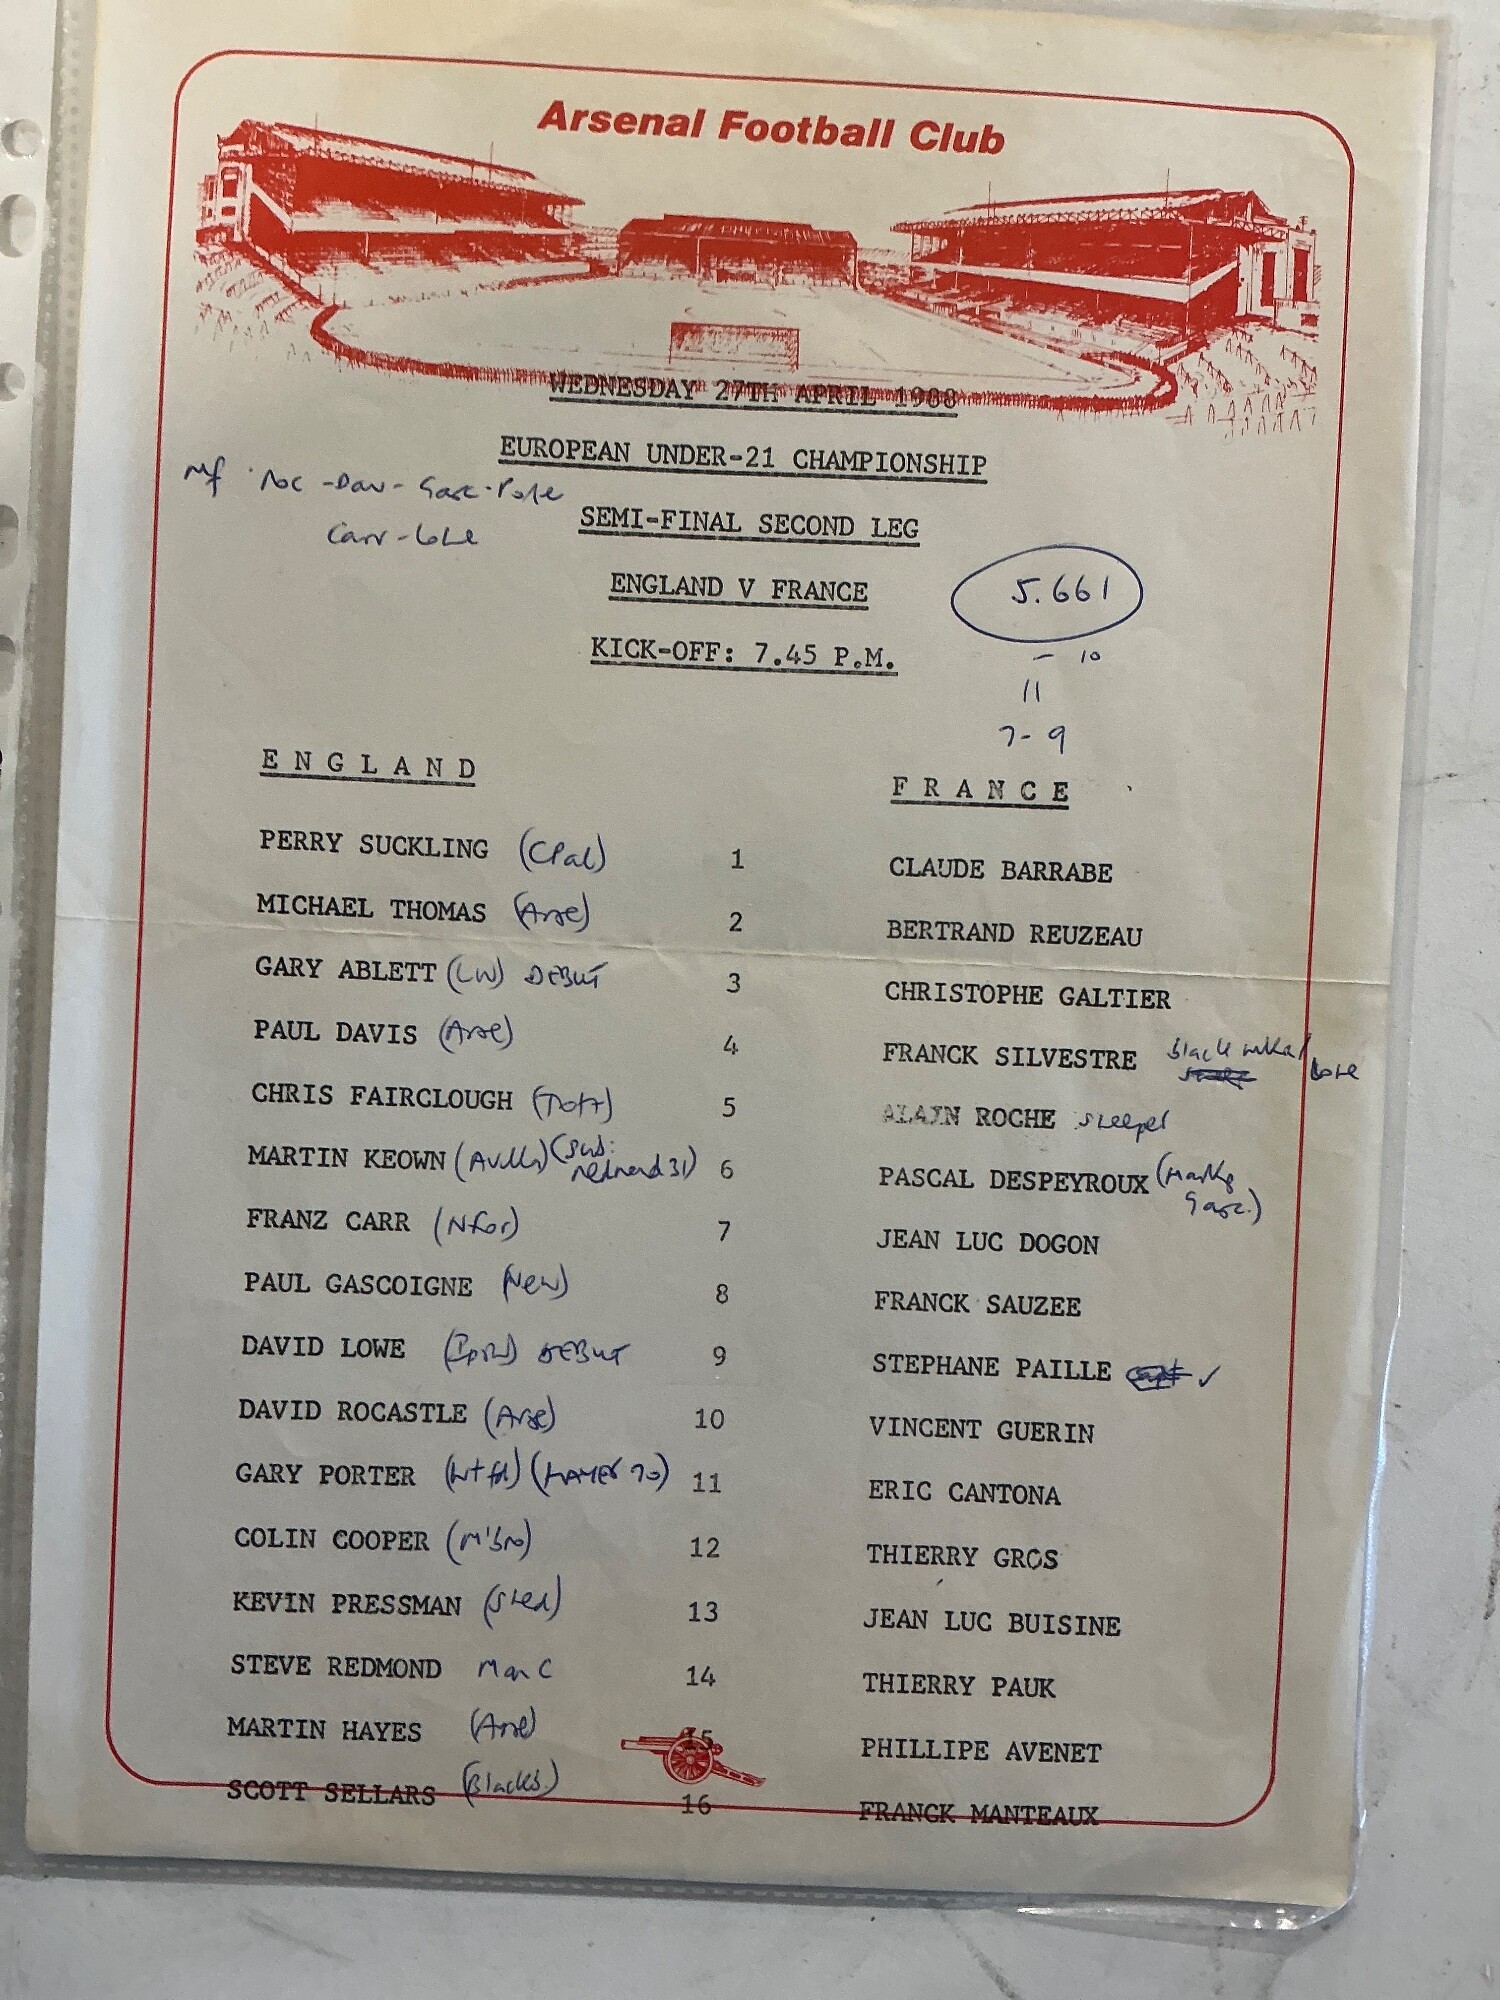 Arsenal Football Club
WEDNESDAY 27TH APRIL 1988
EUROPEAN UNDER-21 CHAMPIONSHIP
Mf Roc - Dav - Gasc - Porte
SEMI-FINAL SECOND LEG
Carr - Lowe
ENGLAND V FRANCE 5.661
KICK-OFF: 7.45 P.M. - 10
11
7 - 9
ENGLAND FRANCE
PERRY SUCKLING (CPal) 1 CLAUDE BARRABE
MICHAEL THOMAS (Arse) 2 BERTRAND REUZEAU
GARY ABLETT (LIV) DEBUT 3 CHRISTOPHE GALTIER
PAUL DAVIS (Arse) 4 FRANCK SILVESTRE black mkr / Lowe
CHRIS FAIRCLOUGH (Tott) 5 ALAIN ROCHE sweeper
MARTIN KEOWN (AVilla) (sub: redmond 31) 6 PASCAL DESPEYROUX (Markg Gasc.)
FRANZ CARR (NFor) 7 JEAN LUC DOGON
PAUL GASCOIGNE (New) 8 FRANCK SAUZEE
DAVID LOWE (Ipsw) DEBUT 9 STEPHANE PAILLE ✓
DAVID ROCASTLE (Arse) 10 VINCENT GUERIN
GARY PORTER (Wtfd) (HAYES 70) 11 ERIC CANTONA
COLIN COOPER (M'bro) 12 THIERRY GROS
KEVIN PRESSMAN (SWed) 13 JEAN LUC BUISINE
STEVE REDMOND Man C 14 THIERRY PAUK
MARTIN HAYES (Arse) 15 PHILLIPE AVENET
SCOTT SELLARS (Blackb.) 16 FRANCK MANTEAUX